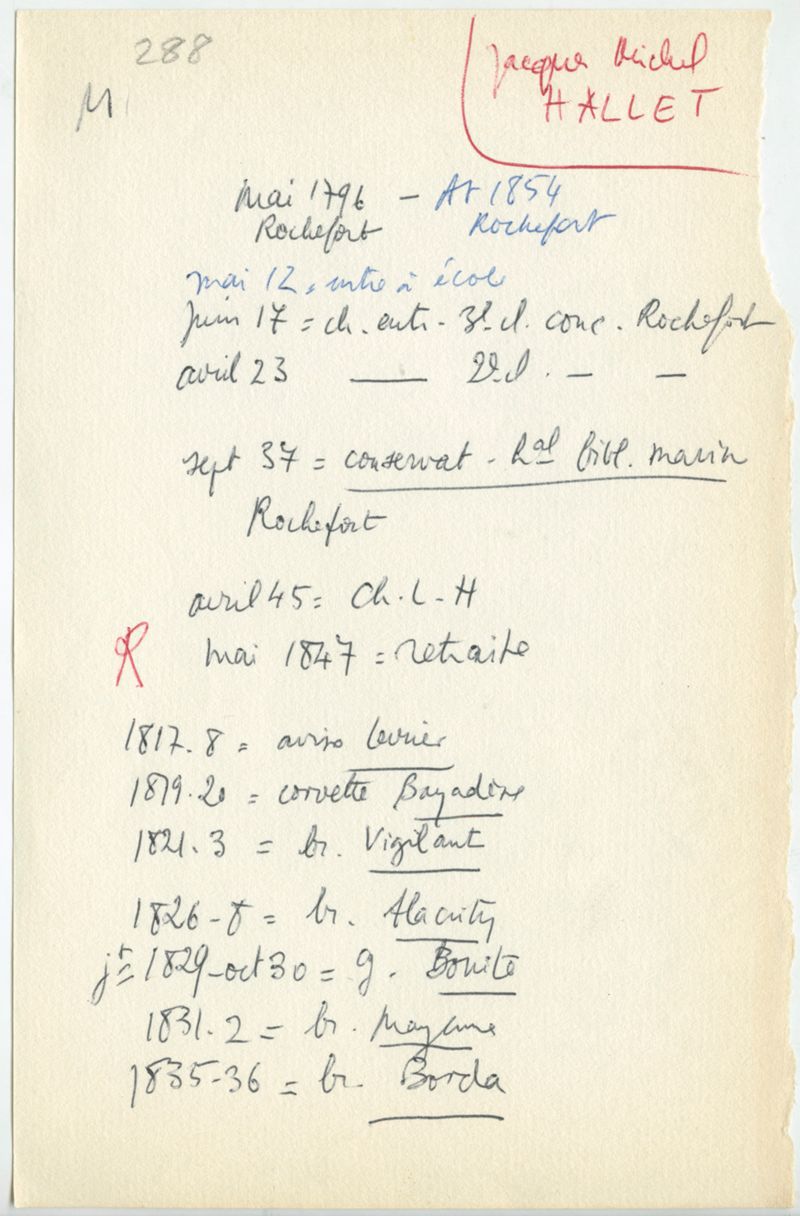 288
M
Jacques Michel
HALLET
mai 1796 - At 1854
Rochefort Rochefort
mai 12 = entre à école
juin 17 = ch. entr. 3e cl. conc. Rochefort
avril 23 — 2e cl. — —
sept 37 = conservat. bibl. marin
Rochefort
avril 45 = Ch. L. H
R mai 1847 = retraite
1817.8 = aviso Levrier
1819.20 = corvette Bayadère
1821.3 = br. Vigilant
1826-8 = br. Alacrity
jt 1829-oct 30 = g. Bonite
1831.2 = br.
1835-36 = br. Borda